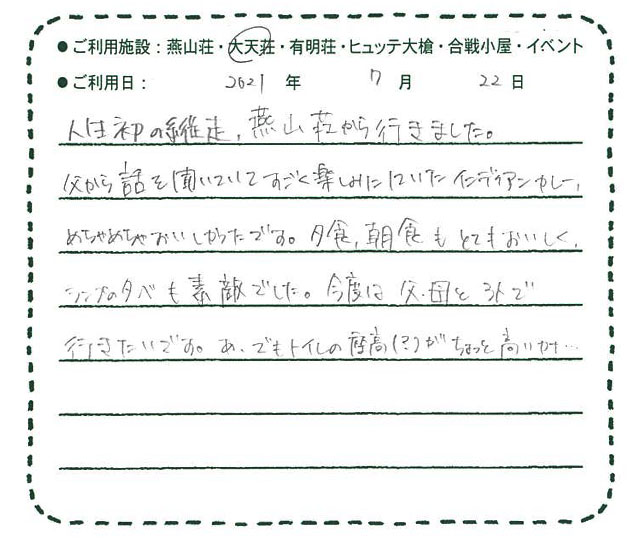 ●ご利用施設：燕山荘・大天荘・有明荘・ヒュッテ大槍・合戦小屋・イベント
●ご利用日： 2021 年 7 月 22 日
人生初の縦走，燕山荘から行きました。
父から話を聞いていてすごく楽しみにしていたインディアンカレー，
めちゃめちゃおいしかったです。夕食，朝食もとてもおいしく，
ランプの夕べも素敵でした。今度は父・母と3人で
行きたいです。あ、でもトイレの座高(?)がちょっと高いかナ…